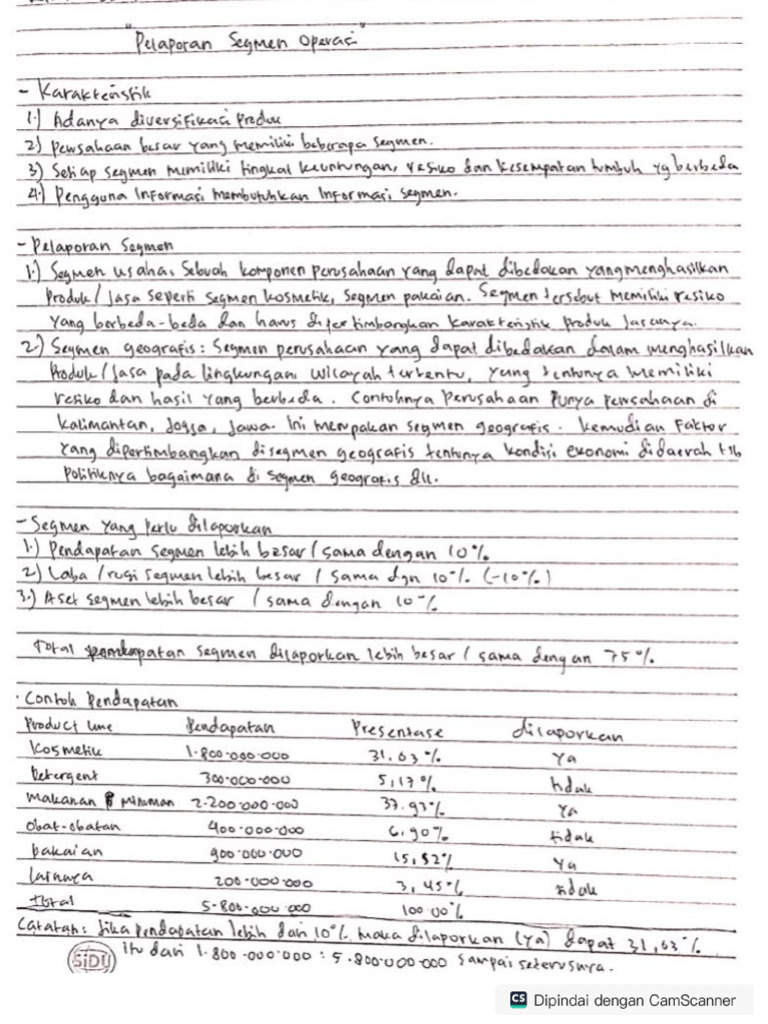 "Pelaporan Segmen Operasi"
- Karakteristik
1.) Adanya diversifikasi Produk
2.) Perusahaan besar yang memiliki beberapa segmen.
3.) Setiap segmen memiliki tingkat keuntungan, resiko dan kesempatan tumbuh yg berbeda
4.) Pengguna Informasi membutuhkan Informasi segmen.
- Pelaporan Segmen
1.) Segmen usaha. Sebuah komponen perusahaan yang dapat dibedakan yang menghasilkan
Produk / Jasa seperti segmen kosmetik, segmen pakaian. Segmen tersebut memiliki resiko
yang berbeda-beda dan harus dipertimbangkan karakteristik produk Jasanya.
2.) Segmen geografis : Segmen perusahaan yang dapat dibedakan dalam menghasilkan
Produk / Jasa pada lingkungan wilayah tertentu, yang tentunya memiliki
resiko dan hasil yang berbeda. Contohnya Perusahaan Punya perusahaan di
kalimantan, Jogja, Jawa. Ini merupakan segmen geografis. kemudian Faktor
yang dipertimbangkan disegmen geografis tentunya kondisi ekonomi didaerah tsb
Politiknya bagaimana di segmen geografis dll.
- Segmen yang Perlu dilaporkan
1.) Pendapatan segmen lebih besar / sama dengan 10%
2.) Laba / rugi segmen lebih besar / sama dgn 10% (-10%)
3.) Aset segmen lebih besar / sama dengan 10%
Total segmen dilaporkan lebih besar / sama dengan 75%.
· Contoh Pendapatan
Product line Pendapatan Presentase dilaporkan
Kosmetik 1.800.000.000 31.03% Ya
Detergent 300.000.000 5,17% tidak
Makanan & Minuman 2.200.000.000 37.93% Ya
Obat-obatan 400.000.000 6,90% tidak
Pakaian 900.000.000 15,52% Ya
Lainnya 200.000.000 3,45% tidak
Total 5.800.000.000 100.00%
Catatan : Jika Pendapatan lebih dari 10% maka dilaporkan (Ya) dapat 31,03%
itu dari 1.800.000.000 : 5.800.000.000 sampai seterusnya.
SIDU
CS Dipindai dengan CamScanner